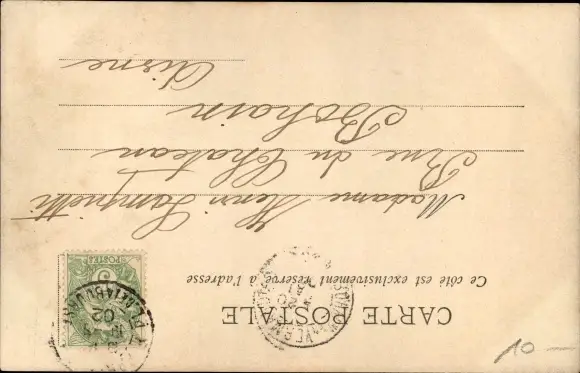 CARTE POSTALE
Ce côté est exclusivement réservé à l'adresse
Madame Henri
Rue du Chateau
Bohain
Aisne
POSTES
5
02
10 -